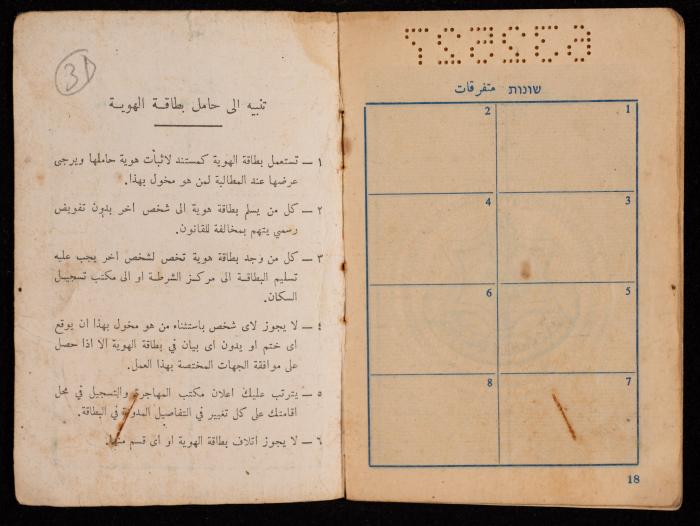 31
تنبيه الى حامل بطاقة الهوية
١ — تستعمل بطاقة الهوية كمستند لاثبات هوية حاملها ويرجى
عرضها عند المطالبة لمن هو مخول بهذا.
٢ — كل من يسلم بطاقة هوية الى شخص اخر بدون تفويض
رسمي يتهم بمخالفة للقانون.
٣ — كل من وجد بطاقة هوية تخص لشخص اخر يجب عليه
تسليم البطاقة الى مركز الشرطة او الى مكتب تسجيل
السكان.
٤ — لا يجوز لاى شخص باستثناء من هو مخول بهذا ان يوقع
اى ختم او يدون اى بيان في بطاقة الهوية الا اذا حصل
على موافقة الجهات المختصة بهذا العمل.
٥ — يترتب عليك اعلان مكتب المهاجرة والتسجيل في محل
اقامتك على كل تغيير في التفاصيل المدونة في البطاقة.
٦ — لا يجوز اتلاف بطاقة الهوية او اى قسم منها.
שונות متفرقات
2 1
4 3
6 5
8 7
18